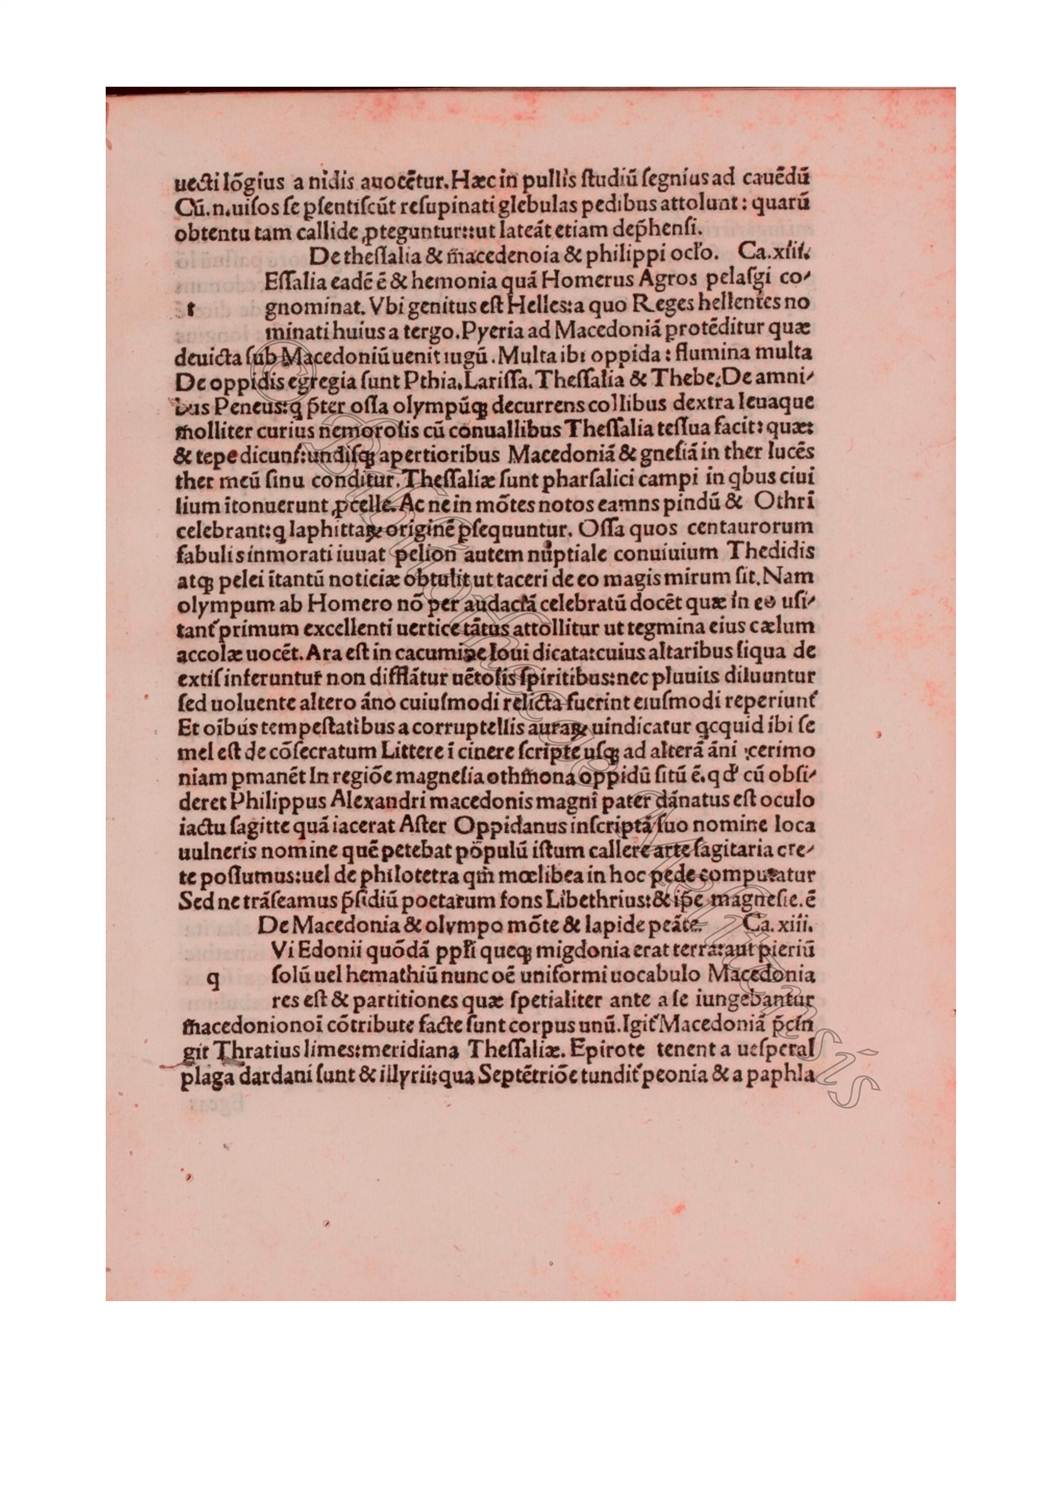 uecti lõgius a nidis auocẽtur. Hæc in pullis ſtudiũ ſegnius ad cauẽdũ
Cũ. n. uiſos ſe pſentiſcũt reſupinati glebulas pedibus attolunt: quarũ
obtentu tam callide ꝓtegunt᷑ur: ut lateãt etiam dep̃henſi.
De theſſalia & m̃acedenoia & philippi oclo. Ca. xiii.
Eſſalia eadẽ ẽ & hemonia quã Homerus Agros pelaſgi co-
t gnominat. Vbi genitus eſt Helles: a quo Reges hellentes no
minati huius a tergo. Pyeria ad Macedoniã protẽditur quæ
deuicta ſub Macedoniũ uenit iugũ. Multa ibi oppida: flumina multa
De oppidis egregia ſunt Pthia. Lariſſa. Theſſalia & Thebe: De amni-
bus Peneus: q p̃ter oſſa olympũqꝫ decurrens collibus dextra leuaque
m̃olliter curius nemoroſis cũ conuallibus Theſſalia teſſua facit: quæ:
& tepe dicunſ: undiſqꝫ apertioribus Macedoniã & gneſiã in ther lucẽs
ther meũ ſinu conditur. Theſſaliæ ſunt pharſalici campi in qbus ciui
lium ĩtonuerunt ꝓcelle. Ac ne in mõtes notos eamns pindũ & Othrĩ
celebrant: q laphittaꝝ originẽ pſequuntur. Oſſa quos centaurorum
fabulis inmorati iuuat pelion autem nuptiale conuiuium Thedidis
atqꝫ pelei ĩtantũ noticiæ obtulit ut taceri de eo magis mirum ſit. Nam
olympum ab Homero nõ per audaciã celebratũ docẽt quæ in eo uſi-
tant᷑ primum excellenti uertice tãtus attollitur ut tegmina eius cælum
accolæ uocẽt. Ara eſt in cacumine Ioui dicata: cuius altaribus ſiqua de
extiſ inferuntur non difflãtur uẽtoſis ſpiritibus: nec pluuits diluuntur
ſed uoluente altero ãno cuiuſmodi relicta fuerint eiuſmodi reperiunt᷑
Et oĩbus tempeſtatibus a corruptellis auraꝝ uindicatur qcquid ibi ſe
mel eſt de cõſecratum Littere ĩ cinere ſcripte uſqꝫ ad alterã ãni cerimo
niam pmanẽt In regiõe magneſia othm̃ona oppidũ ſitũ ẽ. q d' cũ obſi-
deret Philippus Alexandri macedonis magni pater dãnatus eſt oculo
iactu ſagitte quã iacerat Aſter Oppidanus inſcriptã ſuo nomine loca
uulneris nomine quẽ petebat põpulũ iſtum callere arte ſagitaria cre-
te poſſumus: uel de philotetra qm̃ mœlibea in hoc pede computatur
Sed ne trãſeamus p̃ſidiũ poetarum fons Libethrius: & ip̃e magneſie. ẽ
De Macedonia & olympo mõte & lapide peãte. Ca. xiii.
Vi Edonii quõdã ppłi queqꝫ migdonia erat terra: aut pieriũ
q ſolũ uel hemathiũ nunc oẽ uniformi uocabulo Macedonia
res eſt & partitiones quæ ſpetialiter ante a ſe iungebantur
m̃acedonionoĩ cõtribute facte ſunt corpus unũ. Igit᷑ Macedoniã p̃cin
git Thratius limes: meridiana Theſſaliæ. Epirote tenent a ueſperal
plaga dardani ſunt & illyrii: qua Septẽtriõe tundit᷑ peonia & a paphla